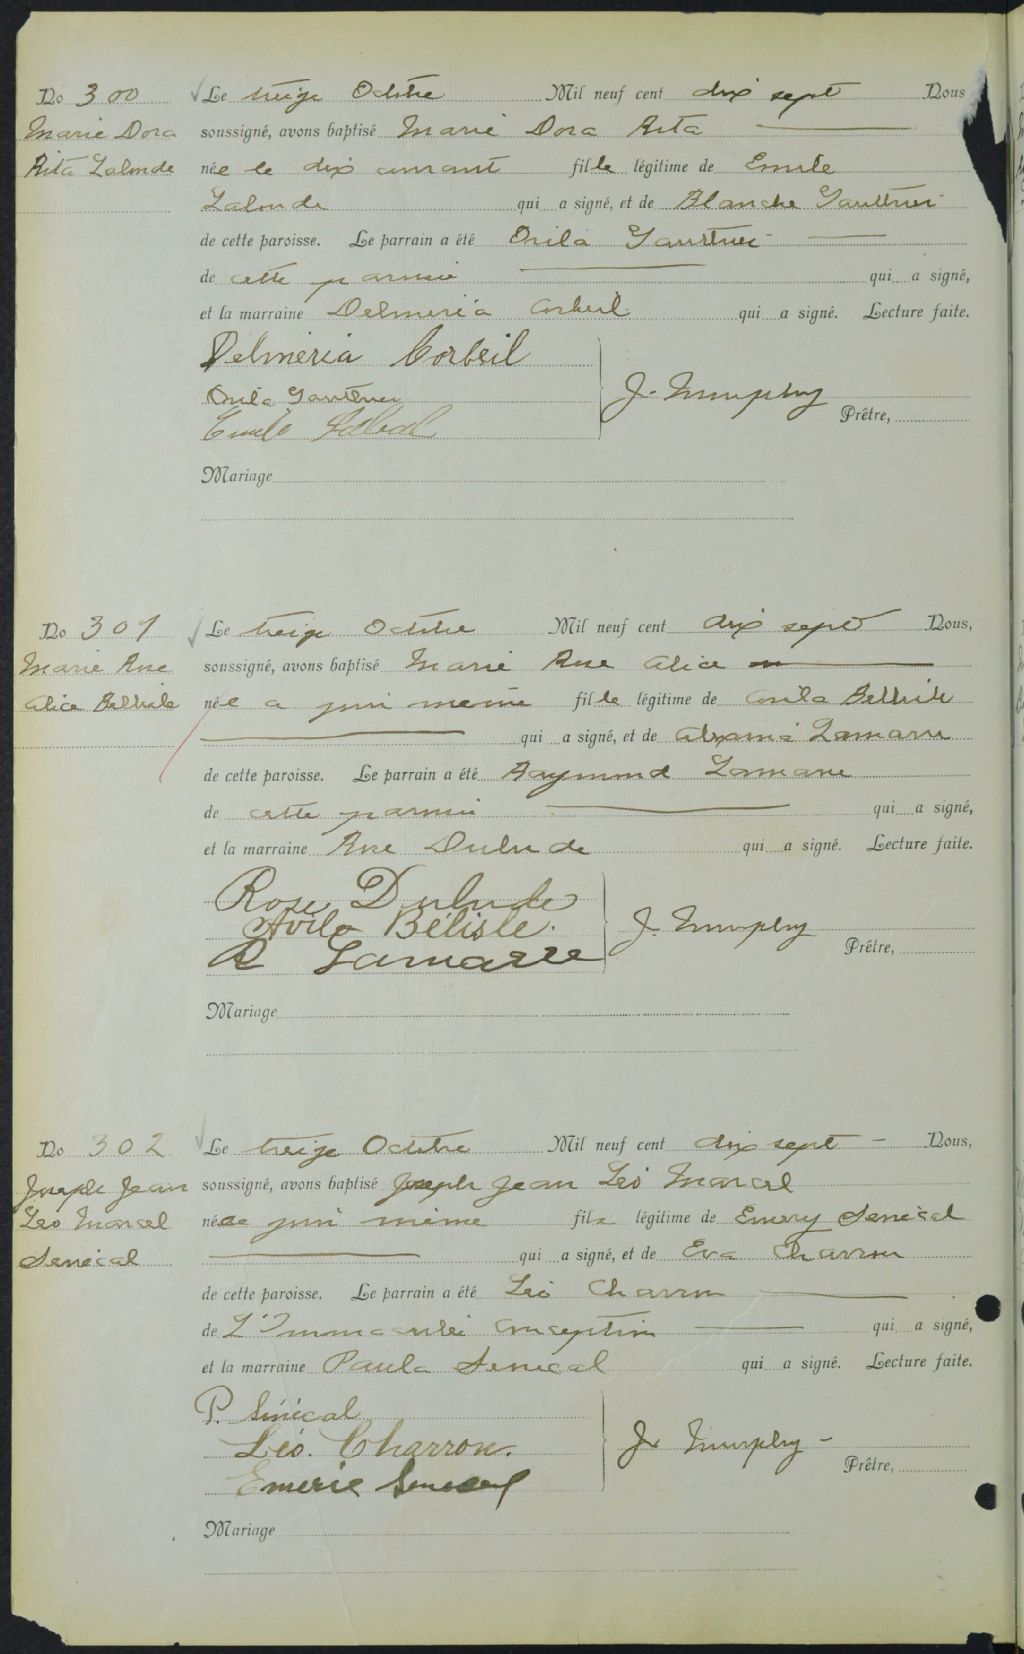 No 300
Marie Dora
Rita Lalonde
Le treize Octobre Mil neuf cent dix sept Nous
soussigné, avons baptisé Marie Dora Rita
née le dix courant fille légitime de Emile
Lalonde qui a signé, et de Blanche Gauthier
de cette paroisse. Le parrain a été Orila Gauthier
de cette paroisse qui a signé,
et la marraine Delmeria Corbeil qui a signé. Lecture faite.
Delmeria Corbeil
Orila Gauthier
Emile
J. Murphy
Prêtre,
Mariage
No 301
Marie Rose
Alice Bellisle
Le treize Octobre Mil neuf cent dix sept Nous,
soussigné, avons baptisé Marie Rose Alice
née ce jour même fille légitime de Avila Bellisle
qui a signé, et de Lamarre
de cette paroisse. Le parrain a été Raymond Lamarre
de cette paroisse qui a signé,
et la marraine Rose Dulude qui a signé. Lecture faite.
Rose Dulude
Avila Bélisle.
R Lamarre
J. Murphy
Prêtre,
Mariage
No 302
Joseph Jean
Léo Marcel
Senécal
Le treize Octobre Mil neuf cent dix sept – Nous,
soussigné, avons baptisé Joseph Jean Léo Marcel
né ce jour même fils légitime de Emery Senécal
qui a signé, et de Eva Charron
de cette paroisse. Le parrain a été Léo Charron
de L'Immaculée Conception qui a signé,
et la marraine Paula Senécal qui a signé. Lecture faite.
P. Sénécal
Léo. Charron.
Emerie Senecal
J. Murphy –
Prêtre,
Mariage